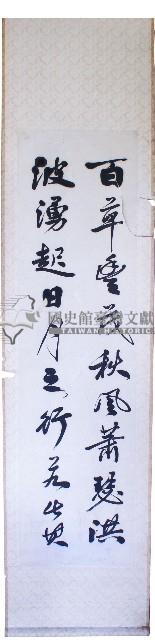 百草豐茂秋風蕭瑟洪
波湧起日月之行若出其
國史館臺灣文獻館
TAIWAN HISTORICA